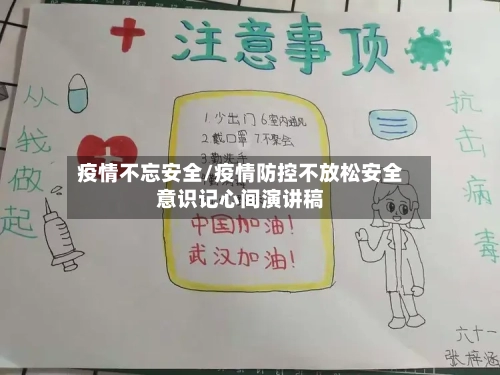 注意事项
从我做起
1少出门 6室内通风
2戴口罩 7不聚会
3勤洗手
疫情不忘安全/疫情防控不放松安全
意识记心间演讲稿
中国加油!
武汉加油!
抗击病毒
六十一
张梓涵